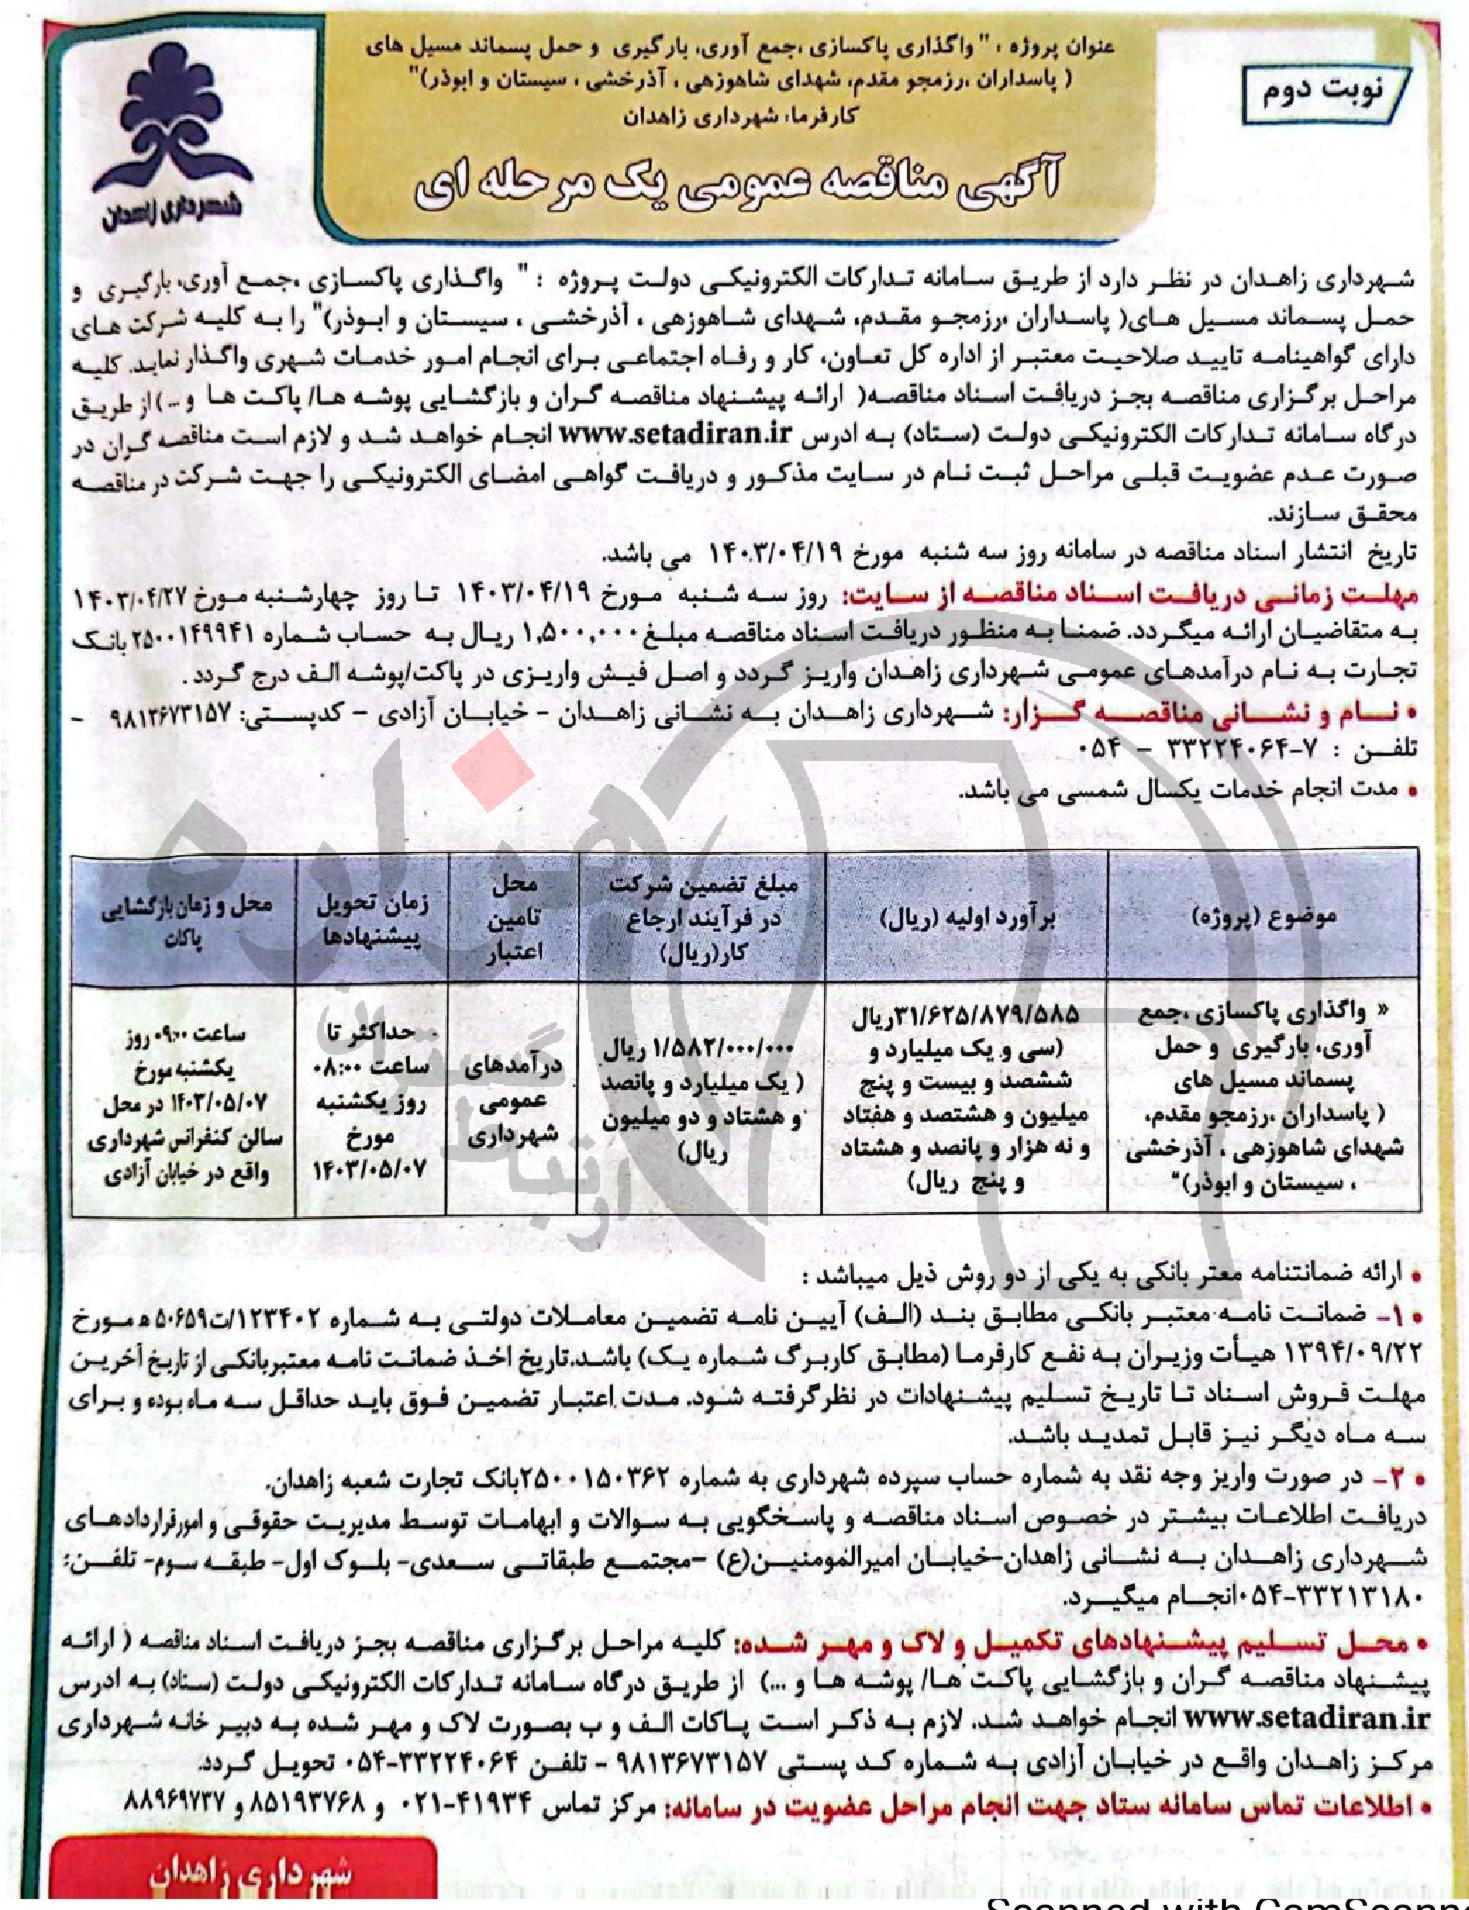 عنوان پروژه : " واگذاری پاکسازی ،جمع آوری، بارگیری و حمل پسماند مسیل های
( پاسداران ،رزمجو مقدم، شهدای شاهوزهی ، آذرخشی ، سیستان و ابوذر)"
کارفرما: شهرداری زاهدان
نوبت دوم
شهرداری زاهدان
آگهی مناقصه عمومی یک مرحله ای
شهرداری زاهدان در نظر دارد از طریق سامانه تدارکات الکترونیکی دولت پروژه : " واگذاری پاکسازی ،جمع آوری، بارگیری و
حمل پسماند مسیل های( پاسداران ،رزمجو مقدم، شهدای شاهوزهی ، آذرخشی ، سیستان و ابوذر)" را به کلیه شرکت های
دارای گواهینامه تایید صلاحیت معتبر از اداره کل تعاون، کار و رفاه اجتماعی برای انجام امور خدمات شهری واگذار نماید. کلیه
مراحل برگزاری مناقصه بجز دریافت اسناد مناقصه( ارائه پیشنهاد مناقصه گران و بازگشایی پوشه ها/ پاکت ها و ...) از طریق
درگاه سامانه تدارکات الکترونیکی دولت (ستاد) به ادرس www.setadiran.ir انجام خواهد شد و لازم است مناقصه گران در
صورت عدم عضویت قبلی مراحل ثبت نام در سایت مذکور و دریافت گواهی امضای الکترونیکی را جهت شرکت در مناقصه
محقق سازند.
تاریخ انتشار اسناد مناقصه در سامانه روز سه شنبه مورخ ۱۴۰۳/۰۴/۱۹ می باشد.
مهلت زمانی دریافت اسناد مناقصه از سایت: روز سه شنبه مورخ ۱۴۰۳/۰۴/۱۹ تا روز چهارشنبه مورخ ۱۴۰۳/۰۴/۲۷
به متقاضیان ارائه میگردد. ضمنا به منظور دریافت اسناد مناقصه مبلغ ۱,۵۰۰,۰۰۰ ریال به حساب شماره ۲۵۰۰۱۴۹۹۴۱ بانک
تجارت به نام درآمدهای عمومی شهرداری زاهدان واریز گردد و اصل فیش واریزی در پاکت/پوشه الف درج گردد .
• نام و نشانی مناقصه گزار: شهرداری زاهدان به نشانی زاهدان - خیابان آزادی - کدپستی: ۹۸۱۳۶۷۳۱۵۷ -
تلفن : ۷-۳۳۲۲۴۰۶۴ - ۰۵۴
• مدت انجام خدمات یکسال شمسی می باشد.
موضوع (پروژه)
برآورد اولیه (ریال)
مبلغ تضمین شرکت
در فرآیند ارجاع
کار(ریال)
محل
تامین
اعتبار
زمان تحویل
پیشنهادها
محل و زمان بازگشایی
پاکات
« واگذاری پاکسازی ،جمع
آوری، بارگیری و حمل
پسماند مسیل های
( پاسداران ،رزمجو مقدم،
شهدای شاهوزهی ، آذرخشی
، سیستان و ابوذر)"
۳۱/۶۲۵/۸۷۹/۵۸۵ریال
(سی و یک میلیارد و
ششصد و بیست و پنج
میلیون و هشتصد و هفتاد
و نه هزار و پانصد و هشتاد
و پنج ریال)
۱/۵۸۲/۰۰۰/۰۰۰ ریال
( یک میلیارد و پانصد
و هشتاد و دو میلیون
ریال)
درآمدهای
عمومی
شهرداری
حداکثر تا
ساعت ۰۸:۰۰
روز یکشنبه
مورخ
۱۴۰۳/۰۵/۰۷
ساعت ۰۹:۰۰ روز
یکشنبه مورخ
۱۴۰۳/۰۵/۰۷ در محل
سالن کنفرانس شهرداری
واقع در خیابان آزادی
هزاره
ارتباط گستران
• ارائه ضمانتنامه معتر بانکی به یکی از دو روش ذیل میباشد :
• ۱- ضمانت نامه معتبر بانکی مطابق بند (الف) آیین نامه تضمین معاملات دولتی به شماره ۱۲۳۴۰۲/ت۵۰۶۵۹ ه مورخ
۱۳۹۴/۰۹/۲۲ هیأت وزیران به نفع کارفرما (مطابق کاربرگ شماره یک) باشد،تاریخ اخذ ضمانت نامه معتبربانکی از تاریخ آخرین
مهلت فروش اسناد تا تاریخ تسلیم پیشنهادات در نظر گرفته شود. مدت اعتبار تضمین فوق باید حداقل سه ماه بوده و برای
سه ماه دیگر نیز قابل تمدید باشد.
• ۲- در صورت واریز وجه نقد به شماره حساب سپرده شهرداری به شماره ۲۵۰۰۱۵۰۳۶۲بانک تجارت شعبه زاهدان.
دریافت اطلاعات بیشتر در خصوص اسناد مناقصه و پاسخگویی به سوالات و ابهامات توسط مدیریت حقوقی و امورقراردادهای
شهرداری زاهدان به نشانی زاهدان-خیابان امیرالمومنین(ع) -مجتمع طبقاتی سعدی- بلوک اول- طبقه سوم- تلفن:
۰۵۴-۳۳۲۱۳۱۸۰انجام میگیرد.
• محل تسلیم پیشنهادهای تکمیل و لاک و مهر شده: کلیه مراحل برگزاری مناقصه بجز دریافت اسناد مناقصه ( ارائه
پیشنهاد مناقصه گران و بازگشایی پاکت ها/ پوشه ها و ...) از طریق درگاه سامانه تدارکات الکترونیکی دولت (ستاد) به ادرس
www.setadiran.ir انجام خواهد شد. لازم به ذکر است پاکات الف و ب بصورت لاک و مهر شده به دبیر خانه شهرداری
مرکز زاهدان واقع در خیابان آزادی به شماره کد پستی ۹۸۱۳۶۷۳۱۵۷ - تلفن ۳۳۲۲۴۰۶۴-۰۵۴ تحویل گردد.
• اطلاعات تماس سامانه ستاد جهت انجام مراحل عضویت در سامانه: مرکز تماس ۴۱۹۳۴-۰۲۱ و ۸۵۱۹۳۷۶۸ و ۸۸۹۶۹۷۳۷
شهرداری زاهدان